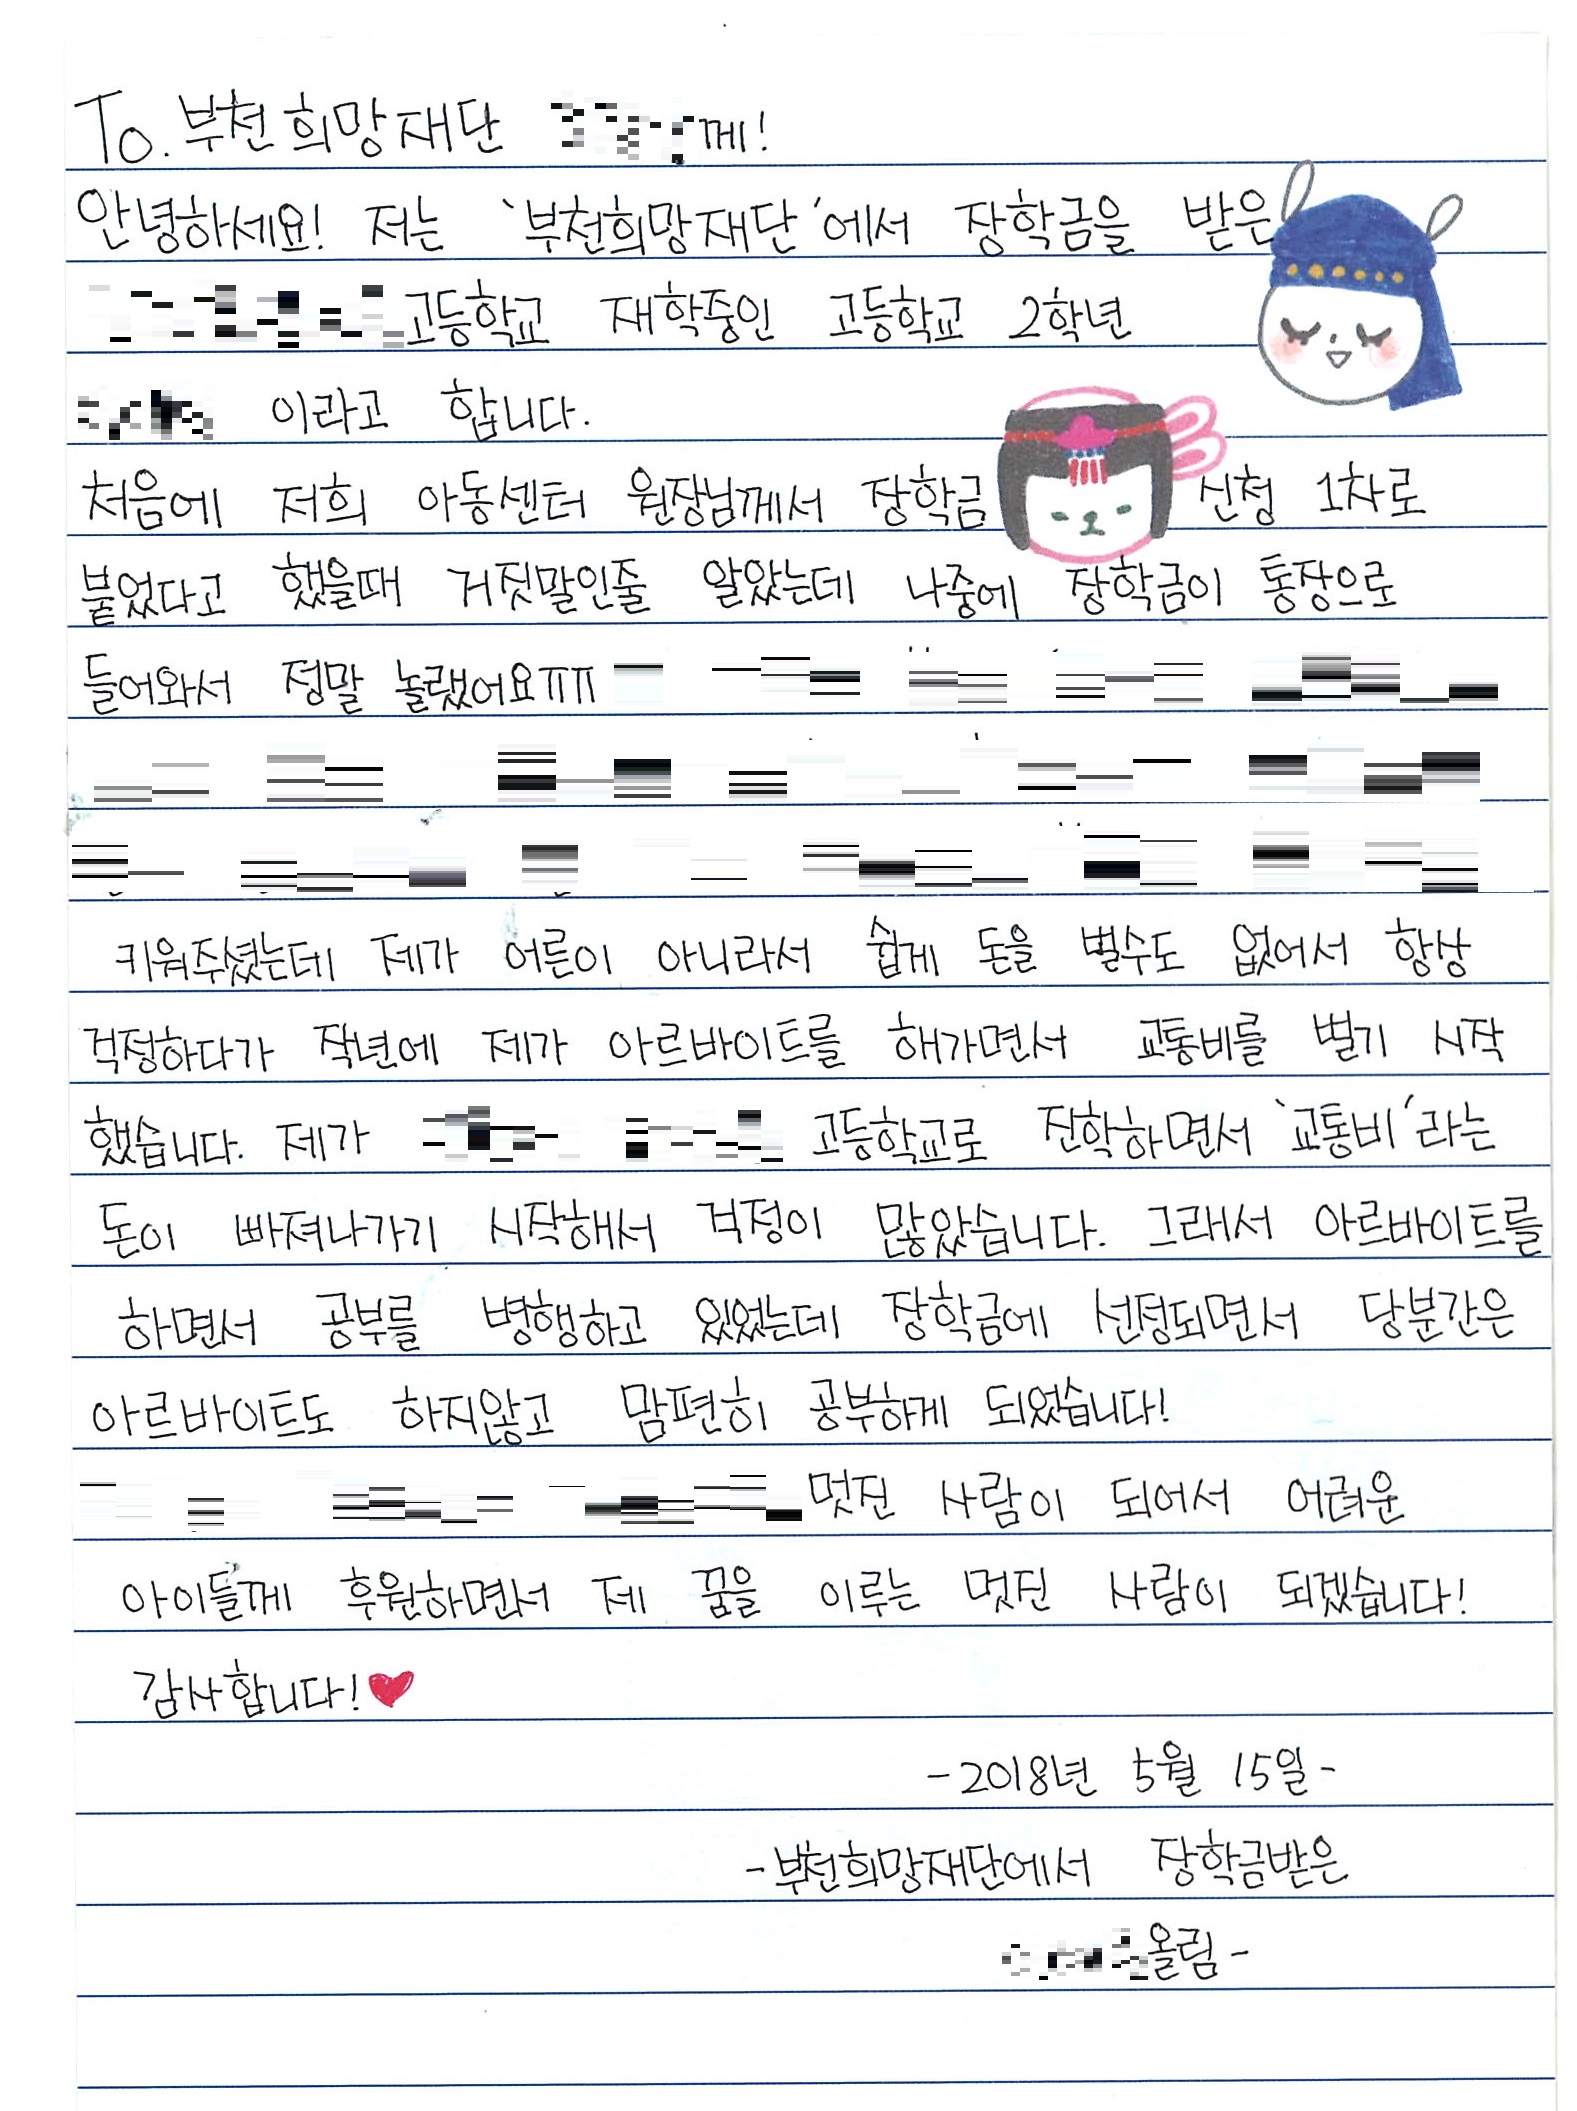 To. 부천희망재단 께!
안녕하세요! 저는 '부천희망재단'에서 장학금을 받은
고등학교 재학중인 고등학교 2학년
이라고 합니다.
처음에 저희 아동센터 원장님께서 장학금 신청 1차로
붙었다고 했을때 거짓말인줄 알았는데 나중에 장학금이 통장으로
들어와서 정말 놀랬어요ㅠㅠ
키워주셨는데 제가 어른이 아니라서 쉽게 돈을 벌수도 없어서 항상
걱정하다가 작년에 제가 아르바이트를 해가면서 교통비를 벌기 시작
했습니다. 제가 고등학교로 진학하면서 '교통비'라는
돈이 빠져나가기 시작해서 걱정이 많았습니다. 그래서 아르바이트를
하면서 공부를 병행하고 있었는데 장학금에 선정되면서 당분간은
아르바이트도 하지않고 맘편히 공부하게 되었습니다!
멋진 사람이 되어서 어려운
아이들께 후원하면서 제 꿈을 이루는 멋진 사람이 되겠습니다!
감사합니다!
-2018년 5월 15일-
-부천희망재단에서 장학금받은
올림-